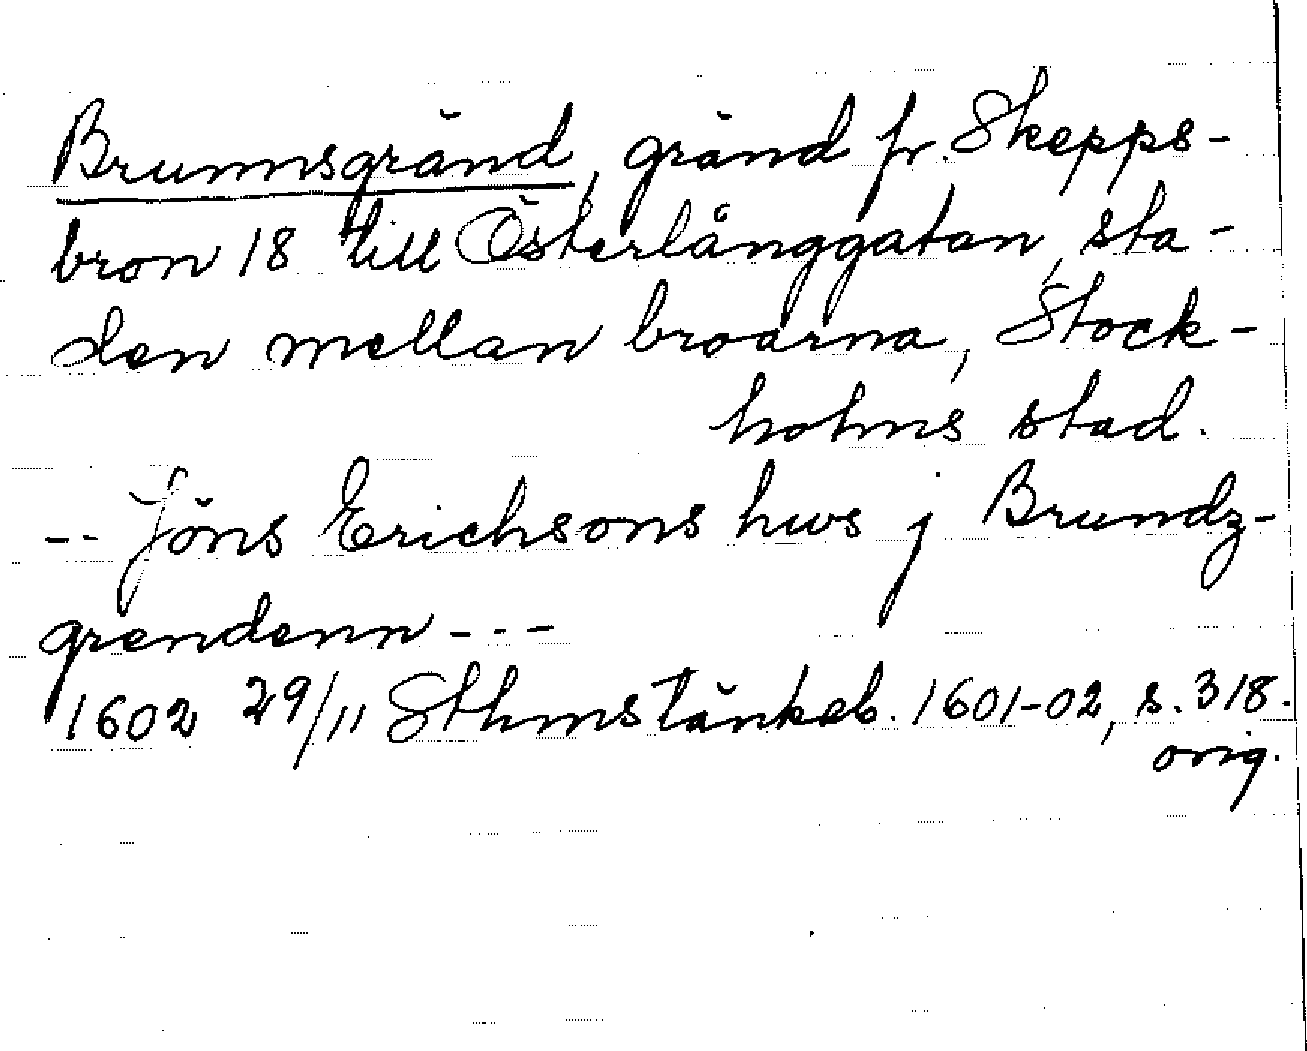 Brunnsgränd, gränd fr. Skepps-
bron 18 till Österlånggatan, sta-
den mellan broarna, Stock-
holms stad.
-- Jöns Erichsons hws j Brundz-
grendenn ---
1602 29/11 Sthms tänkeb. 1601-02, s. 318.
orig.